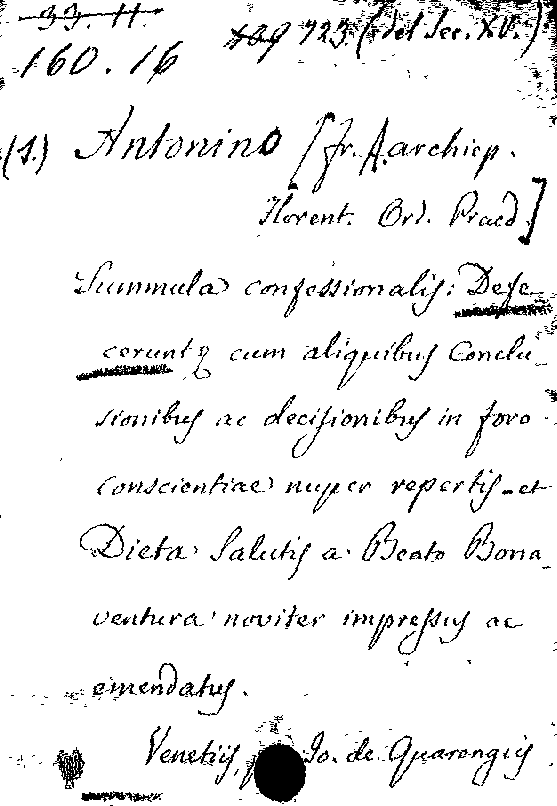 33. 11.
723. (del Sec. XV.)
160. 16
(1.) Antonino [fr. A. archiep.
Florent. Ord. Praed.]
Summula confessionalis: Defe
cerunt cum aliquibus Conclu-
sionibus ac decisionibus in foro
conscientiae nuper repertis et
Dieta Salutis a Beato Bona-
ventura noviter impressus ac
emendatus.
Venetiis, Jo. de Quarengiis